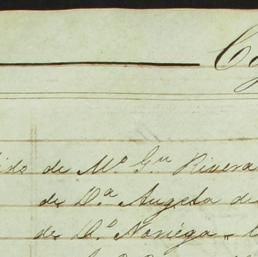 Co
ido de M.º G.ⁿ Rivera
de D.ª Angela de
de D.º Noriega